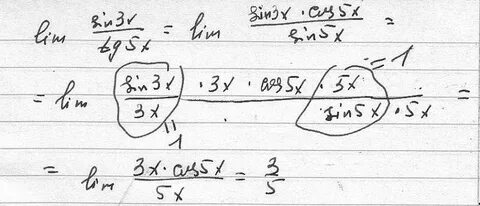 lim sin3x/tg5x = lim sin3x · cos5x/sin5x =
= lim sin3x/3x · 3x · cos5x · 5x/sin5x · 5x =
= 1
= 1
= lim 3x · cos5x/5x = 3/5